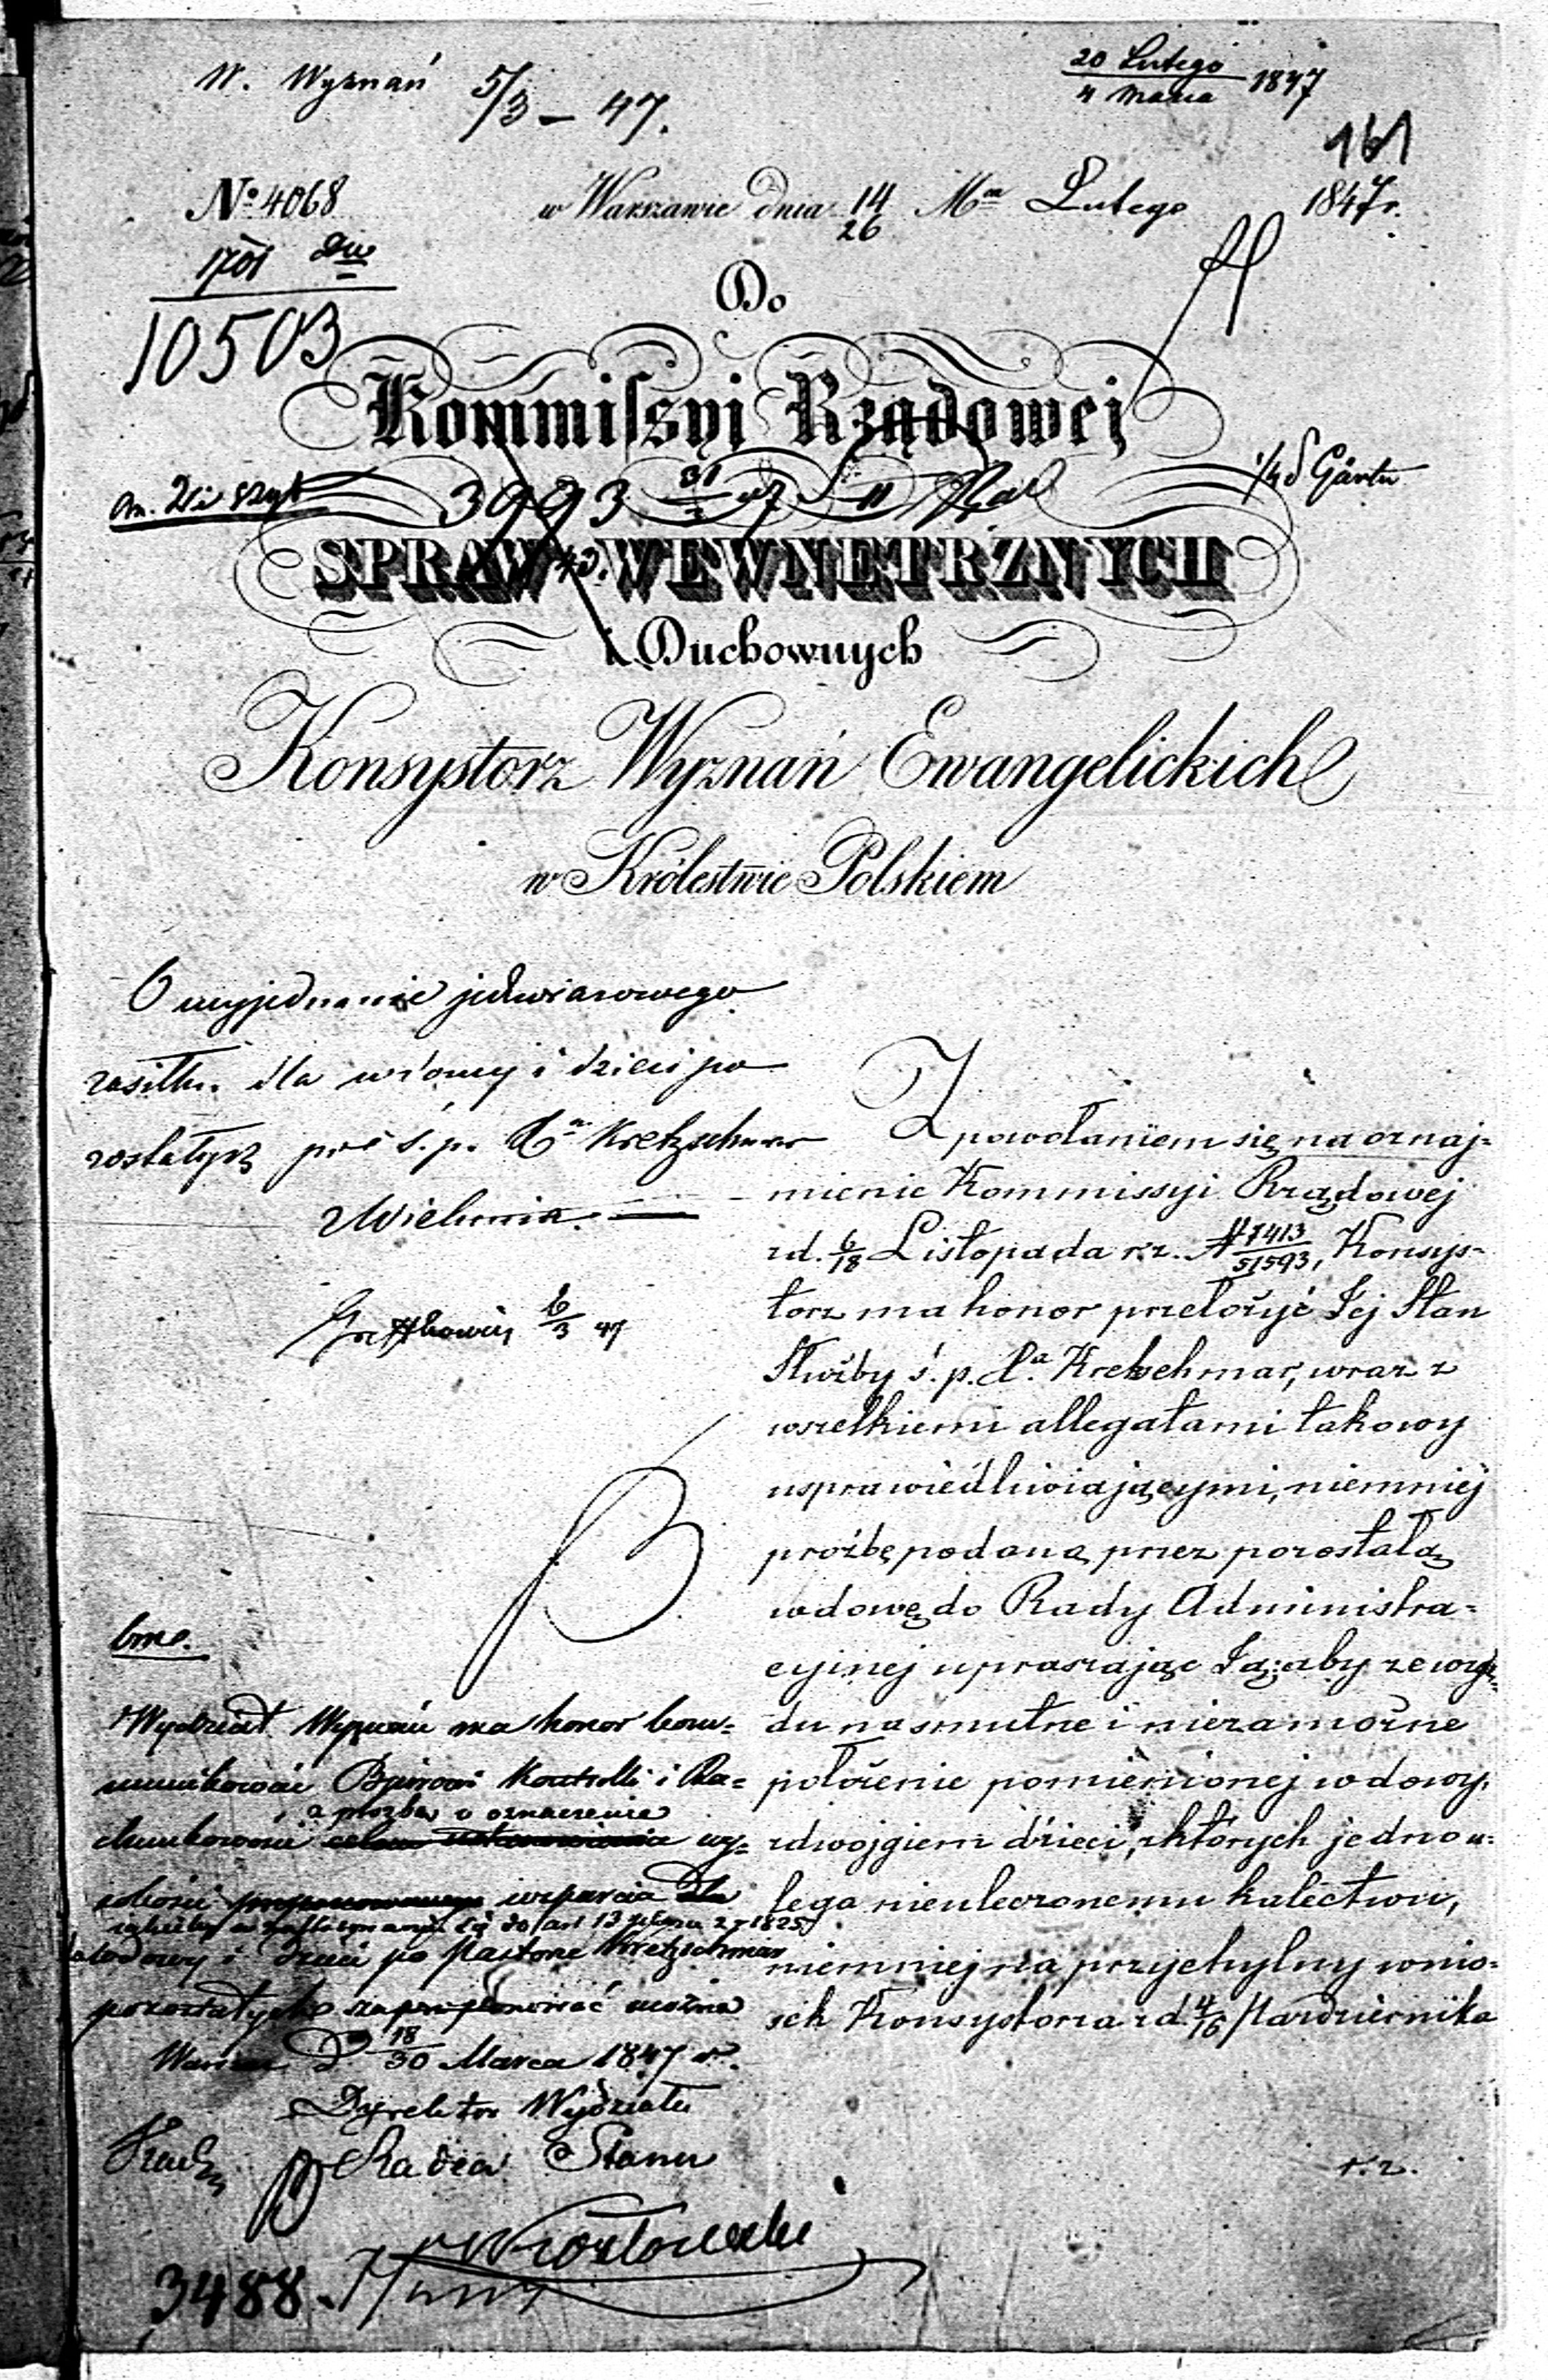 W. Wyznań 5/3 – 47.
20 Lutego
4 Marca 1847
161
№ 4068
w Warszawie dnia 14/26 Mca Lutego 1847 r.
1701
10503
Do
Kommissyi Rządowej
3993 31/3 47
SPRAW WEWNĘTRZNYCH
i Duchownych
Konsystorz Wyznań Ewangelickich
w Królestwie Polskiem
O wyjednanie jednorazowego
zasiłku dla wdowy i dzieci po
zostałych po ś. p. Kretzschmar
z Wielunia.
6/3 47
Z powołaniem się na oznaj-
mienie Kommissyi Rządowej
z d. 6/18 Listopada r. z. № 7413/51593, Konsys-
torz ma honor przełożyć Jej Stan
Służby ś. p. Xa. Kretzschmar, wraz z
wszelkiemi allegatami takowy
usprawiedliwiającymi, niemniej
prożbę podaną przez pozostałą
wdowę do Rady Administra-
cyjnej upraszając Ją: aby ze wzglę-
du na smutne i niezamożne
położenie pomienionej wdowy,
z dwojgiem dzieci, z których jedno u-
lega nieuleczonemu kalectwu,
niemniej na przychylny wnio-
sek Konsystorza z d. 4/16 Pazdziernika
r. z.
bmo.
Wydział Wyznań ma honor kom-
munikować Biurowi Kontrolli i Ra-
z prożbą o oznaczenie
chunkowości celem wy-
sokości wsparcia dla
art 13 1825
wdowy i dzieci po Pastorze Kretzschmar
pozostałych można
Warszawa D. 18/30 Marca 1847 r.
Dyrektor Wydziału
Radca Stanu
3488.